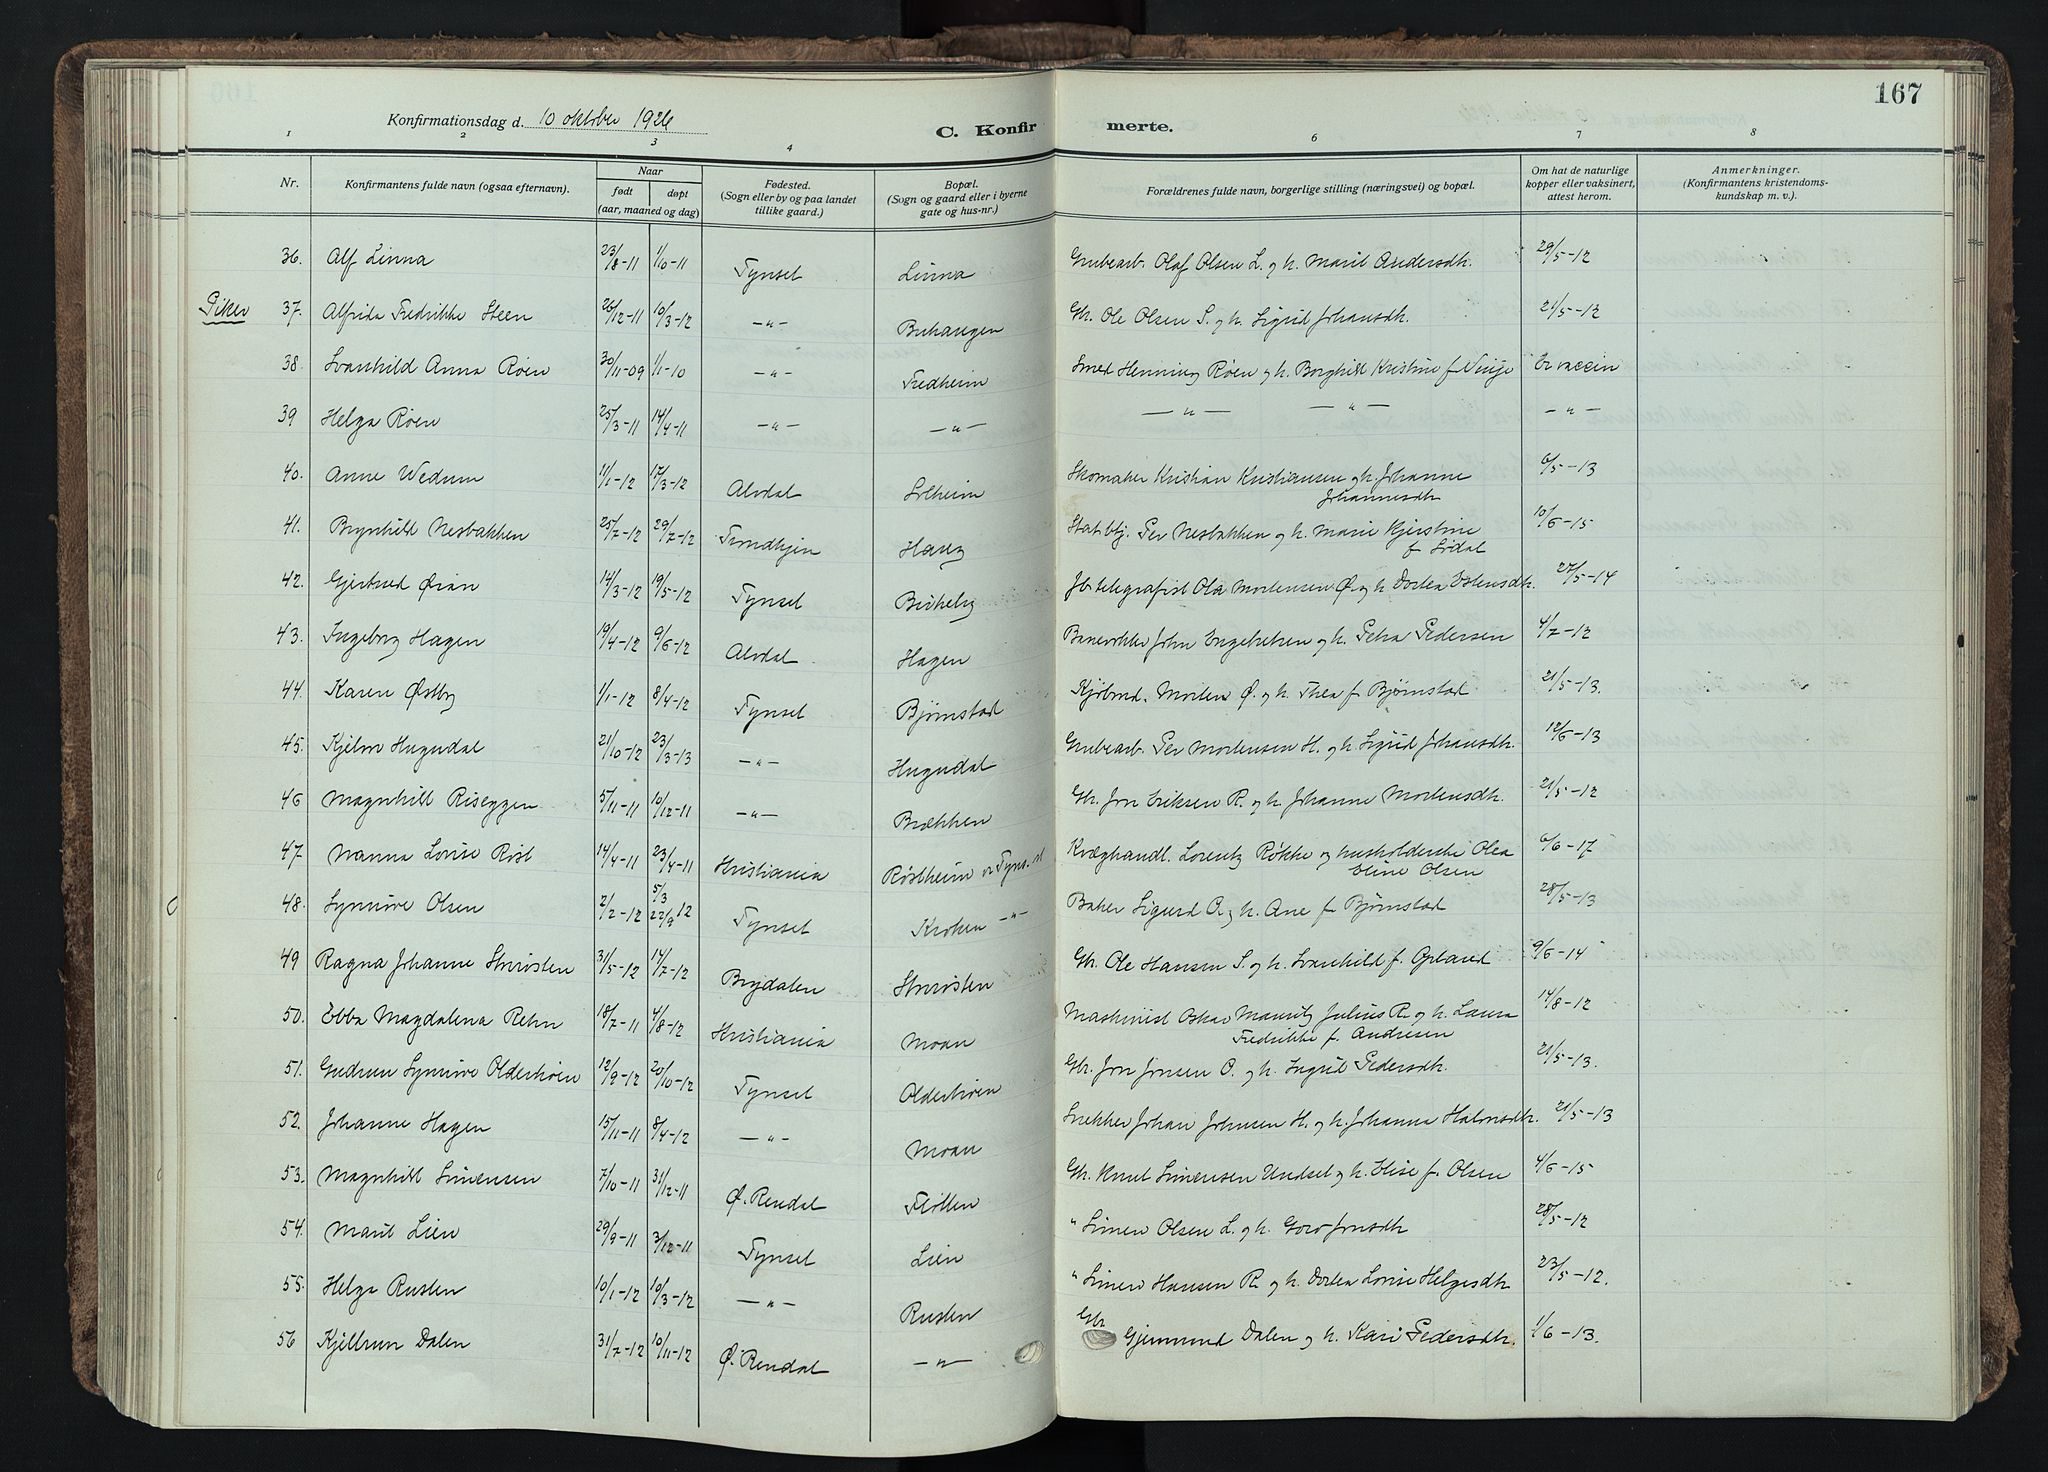 167
Konfirmationsdag d. 10 oktober 1926
C. Konfirmerte.
1 2 3 4 6 7 8
Nr. Konfirmantens fulde navn (ogsaa efternavn). Naar født døpt (aar, maaned og dag) Fødested. (Sogn eller by og paa landet tillike gaard.) Bopæl. (Sogn og gaard eller i byerne gate og hus-nr.) Forældrenes fulde navn, borgerlige stilling (næringsvei) og bopæl. Om hat de naturlige kopper eller vaksinert, attest herom. Anmerkninger. (Konfirmantens kristendomskundskap m. v.).
36. Alf Linna 23/8-11 1/10-11 Tynset Linna Grubearb. Olaf Olsen L. og h. Marit Andersdtr. 29/5-12
Piker 37. Alfrida Fredrikke Steen 26/12-11 10/3-12 -"- Buhaugen Gbr. Ole Olsen S. og h. Sigrid Johansdtr. 21/5-12
38. Svanhild Anna Røen 30/11-09 1/1-10 -"- Fredheim Smed Henning Røen og h. Borghild Kristine f. Vinje Er vaccin
39 Helga Røen 25/3-11 14/4-11 -"- -"- -"- -"- -"-
40. Anne Wedum 11/1-12 17/3-12 Alvdal Solheim Skomaker Kristian Kristiansen og h. Johanne Johannesdtr 6/5-13
41. Brynhild Nesbakken 25/7-12 29/7-12 Trondhjem Haug Statsbtj. Per Nesbakken og h. Marie Kjerstine f. Lödal 10/6-15
42. Gjertrud Øian 14/3-12 19/5-12 Tynset Birkeby Jb.telegrafist Ola Mortensen Ø. og h. Dortea Estensdtr. 27/5-14
43. Ingeborg Hagen 19/4-12 9/6-12 Alvdal Hagen Banevokter John Engebretsen og h. Petra Pedersen 4/7-12
44. Karen Østby 1/1-12 8/4-12 Tynset Bjørnstad Kjøbmd. Morten Ø. og h. Thea f. Bjørnstad 21/5-13.
45. Kjelfrid Hugudal 21/10-12 23/3-13 -"- Hugudal Grubearb. Per Mortensen H. og h. Sigrid Johansdtr. 12/6-13
46 Magnhild Riseggen 5/11-11 10/12-11 -"- Brækken Gbr. Jon Eriksen R. og h. Johanne Mortensdtr. 21/5-12
47. Nanna Lovise Røst 14/4-11 23/4-11 Kristiania Røstheim v. Tynset Kvæghandl. Lorentz Røkke og husholderske Olea Eline Olsen 6/6-17
48. Synnøve Olsen 2/2-12 5/3 22/9 12 Tynset Kroken -"- Baker Sigurd O. og h. Ane f. Bjørnstad 28/5-13
49 Ragna Johanne Storrøsten 31/5-12 14/7-12 Brydalen Storrøsten Gbr. Ole Hansen S. og h. Svanhild f. Opland 9/6-14
50. Ebba Magdalena Rehn 18/7-11 4/8-12 Kristiania Moan Maskinist Oskar Mauritz Julius R. og h. Laura Fredrikke f. Andresen 14/8-12
51. Gudrun Synnøve Oldertrøen 12/9-12 20/10-12 Tynset Oldertrøen Gbr. Jon Jonsen O. og h. Ingrid Pedersdtr. 21/5-13.
52. Johanne Hagen 15/11-11 8/4-12 -"- Moan Snekker Johan Johnsen H. og h. Johanna Halvorsdtr. 21/5-13
53. Magnhild Simensen 7/10-11 31/12-11 Ø. Rendal Fløtten Gbr. Knut Simensen Undset og h. Elise f. Olsen 4/6-15
54. Marit Lien 29/9-11 3/12-11 Tynset Lien " Simen Olsen L. og h. Goro Jonsdtr 28/5-12
55. Helga Rusten 10/1-12 10/3-12 -"- Rusten " Simen Hansen R. og h. Dortea Lovise Helgesdtr 23/5-12.
56 Kjellrun Dalen 31/7-12 10/11-12 Ø. Rendal -"- Gbr Gjermund Dalen og h. Kari Pedersdtr. 1/6-13.